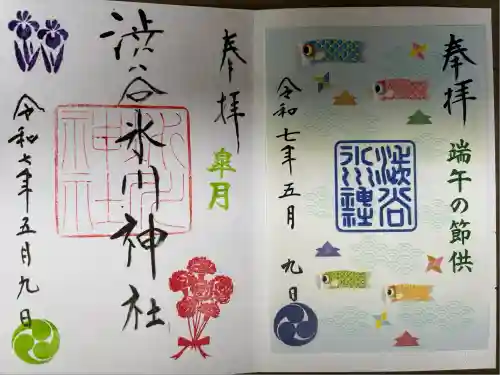 奉拝
皐月
渋谷氷川神社
氷川
神社
令和七年五月九日
奉拝
端午の節供
渋谷
氷川神社
令和七年五月九日